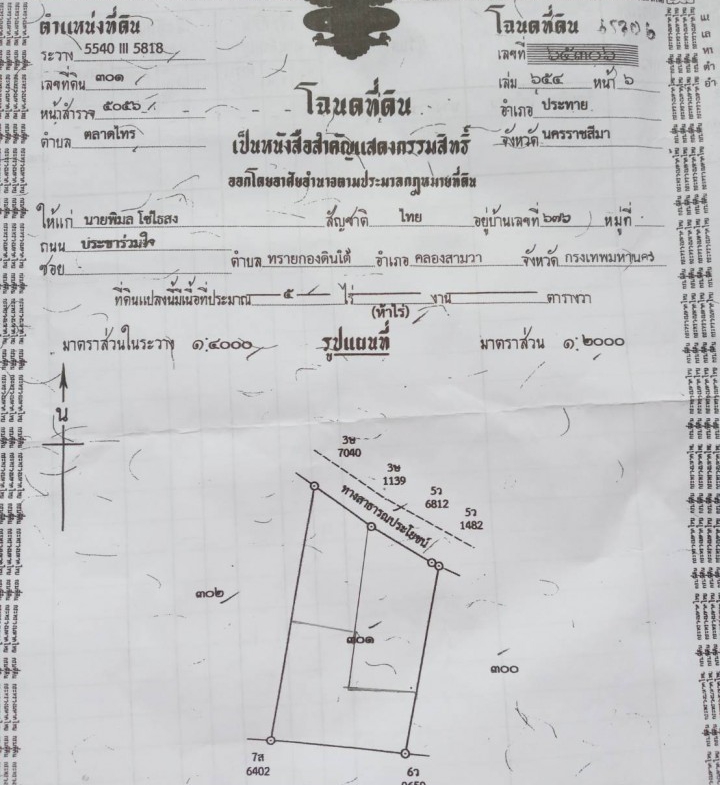 ตำแหน่งที่ดิน
ระวาง 5540 III 5818
เลขที่ดิน ๓๐๑
หน้าสำรวจ ๕๐๕๖
ตำบล ตลาดไทร
โฉนดที่ดิน
เป็นหนังสือสำคัญแสดงกรรมสิทธิ์
ออกโดยอาศัยอำนาจตามประมวลกฎหมายที่ดิน
โฉนดที่ดิน
เลขที่ ๖๕๓๐๖
เล่ม ๖๕๔ หน้า ๖
อำเภอ ประทาย
จังหวัด นครราชสีมา
ให้แก่ นายพิมล โชไธสง สัญชาติ ไทย อยู่บ้านเลขที่ ๖๗๖ หมู่ที่ -
ถนน ประชาร่วมใจ
ซอย - ตำบล ทรายกองดินใต้ อำเภอ คลองสามวา จังหวัด กรุงเทพมหานคร
ที่ดินแปลงนี้มีเนื้อที่ประมาณ ๕ ไร่ งาน ตารางวา
(ห้าไร่)
มาตราส่วนในระวาง ๑:๔๐๐๐ รูปแผนที่ มาตราส่วน ๑:๒๐๐๐
น
3ษ
7040
3ษ
1139
5ว
6812
5ว
1482
ทางสาธารณประโยชน์
๓๐๒
๓๐๑
๓๐๐
7ส
6402
6ว